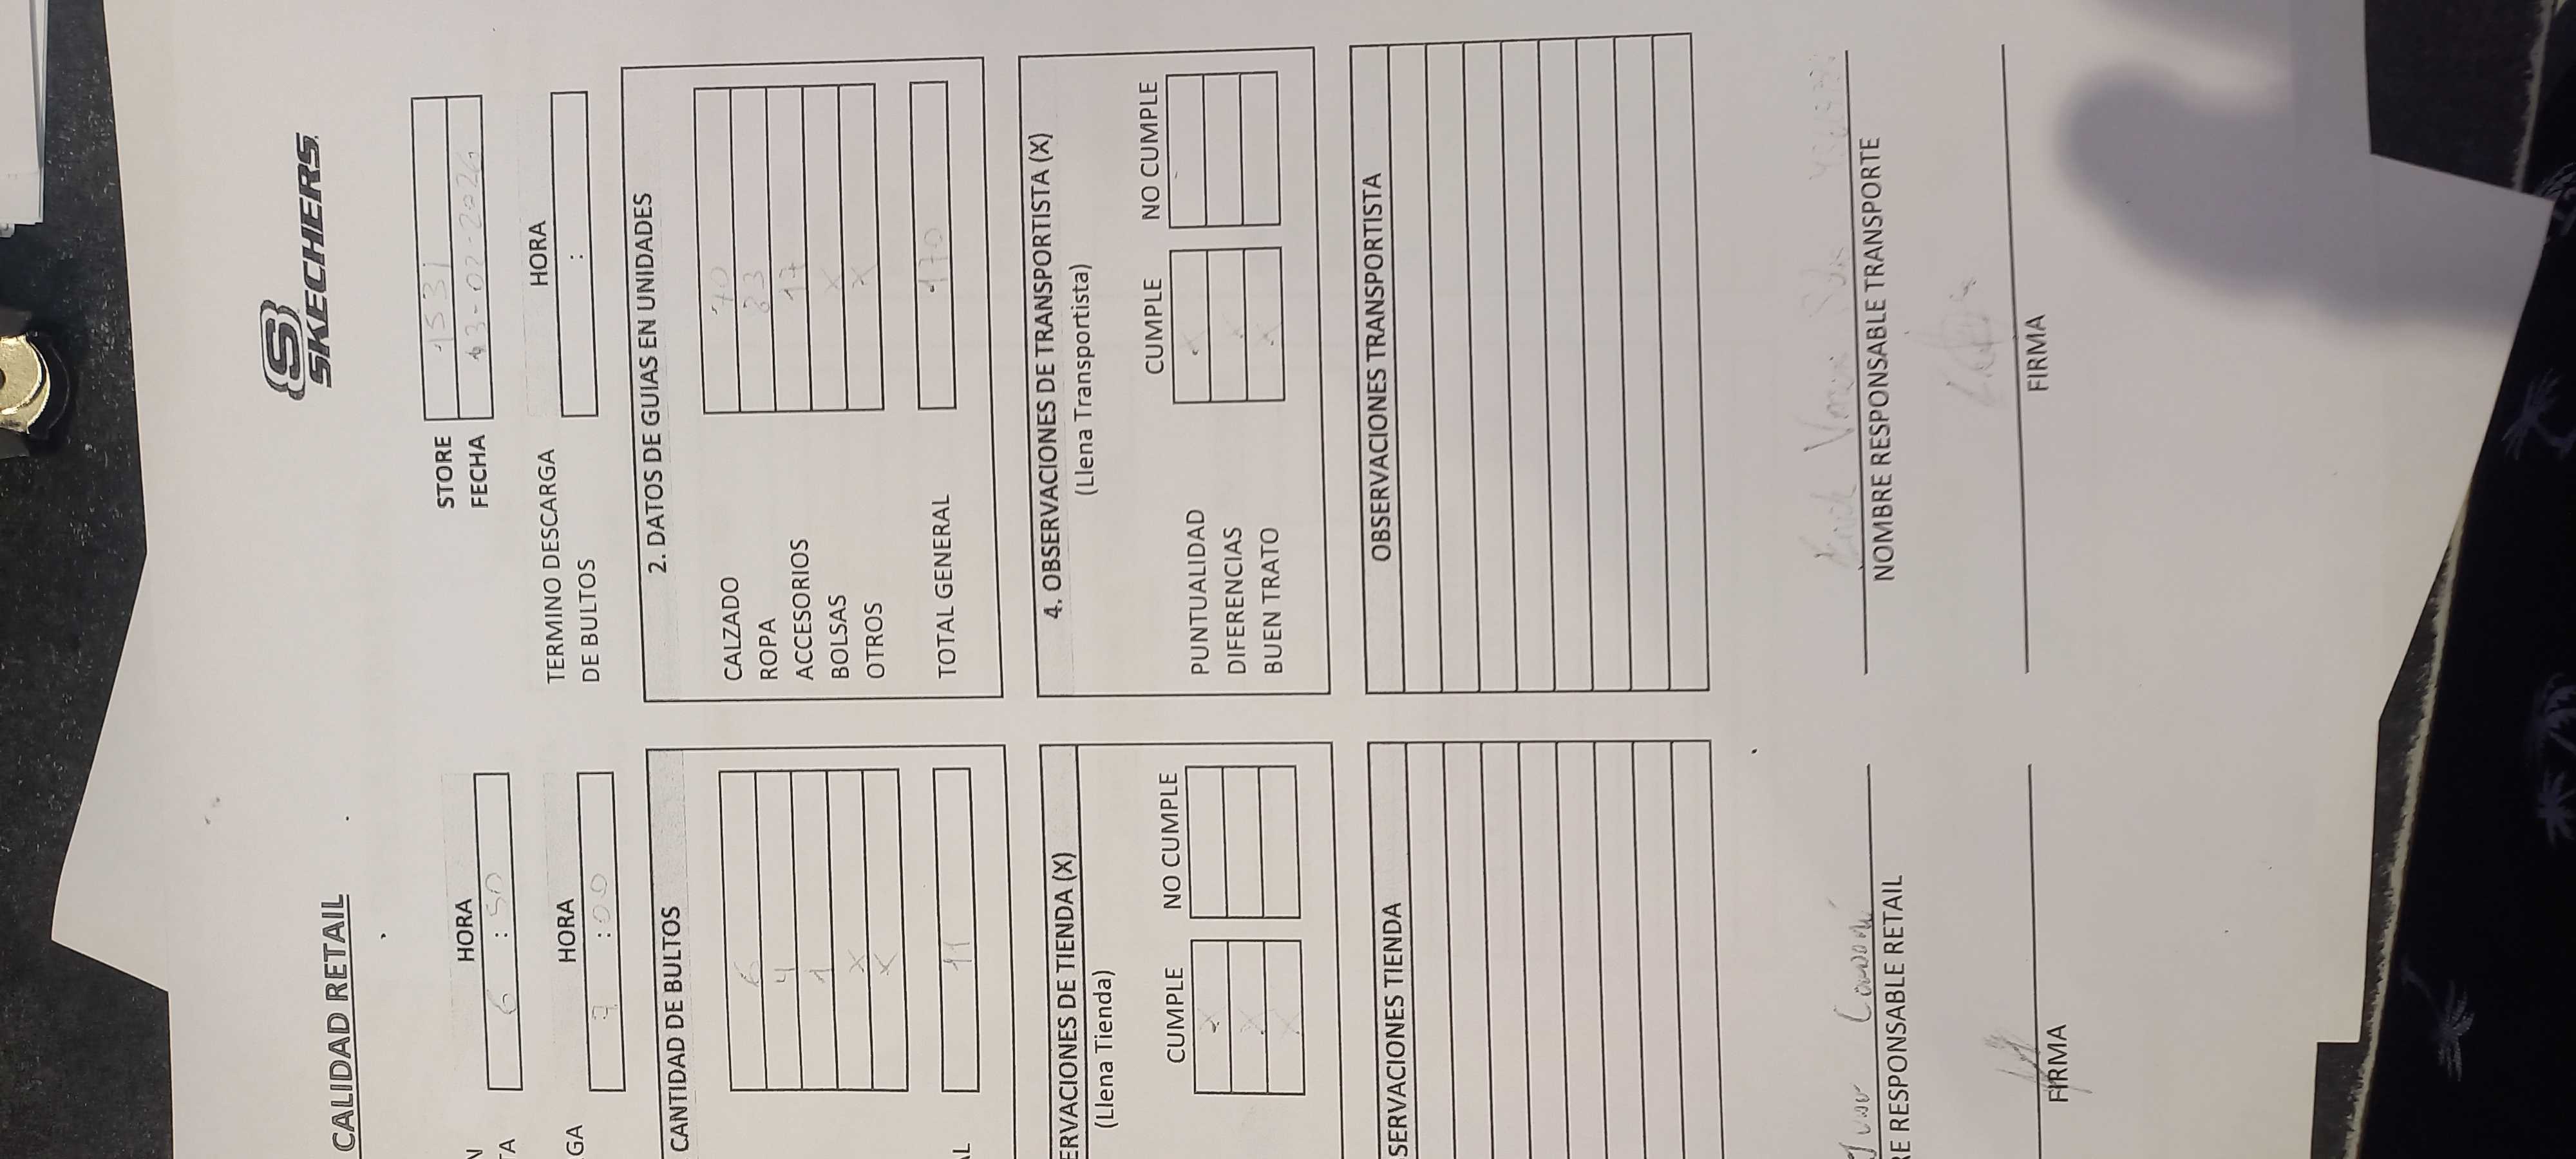 SKECHERS
CALIDAD RETAIL
STORE 1531
FECHA 13-02-2026
HORA
6:50
TERMINO DESCARGA
DE BULTOS
HORA
:
GA
HORA
7:00
CANTIDAD DE BULTOS
6
4
1
X
X
11
2. DATOS DE GUIAS EN UNIDADES
CALZADO 70
ROPA 83
ACCESORIOS 17
BOLSAS X
OTROS X
TOTAL GENERAL 170
ERVACIONES DE TIENDA (X)
(Llena Tienda)
CUMPLE NO CUMPLE
X
X
X
4. OBSERVACIONES DE TRANSPORTISTA (X)
(Llena Transportista)
CUMPLE NO CUMPLE
PUNTUALIDAD X
DIFERENCIAS X
BUEN TRATO X
SERVACIONES TIENDA
OBSERVACIONES TRANSPORTISTA
RE RESPONSABLE RETAIL
NOMBRE RESPONSABLE TRANSPORTE
FIRMA
FIRMA